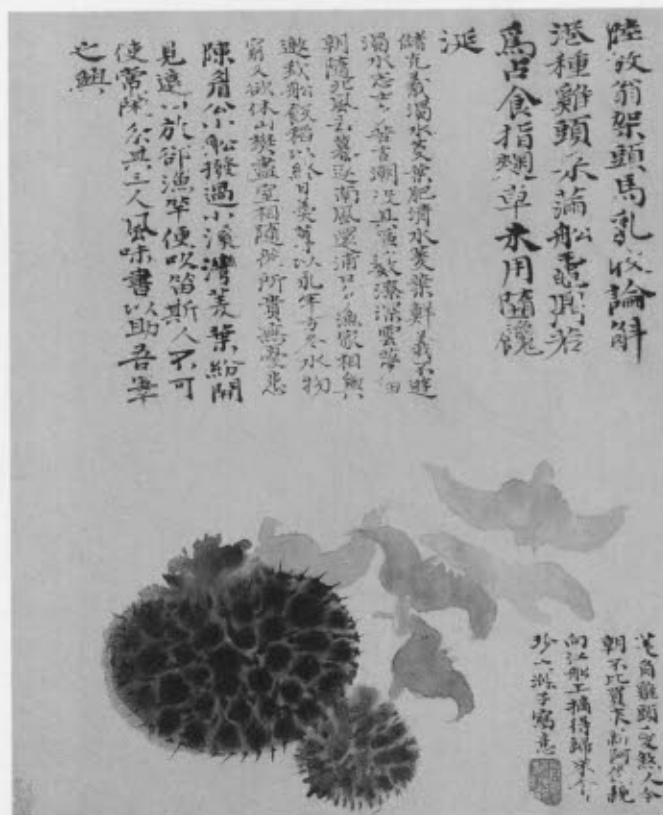 陸放翁架頭馬乳收論斛
港種雞頭采滿船
為占食指麴車未用墮饞
涎
儲光羲濁水菱葉肥清水菱葉鮮義不遊
濁水志士多苦言潮沒具區藪潦深雲夢田
朝隨北風去暮逐南風還浦口多漁家相與
邀我船飯稻以終日羹蓴以永年方冬水物
窮又欲休山樊盡室相隨從所貴無憂患
陳眉公小船撥過小溪灣菱葉紛開
見遠山放卻漁竿便吹笛斯人不可
使常閑與三人風味書以助吾筆
之興
菱角雞頭愛煞人今
朝不比買來新阿儂親
向江船上摘得歸來
珍大滌子寫意